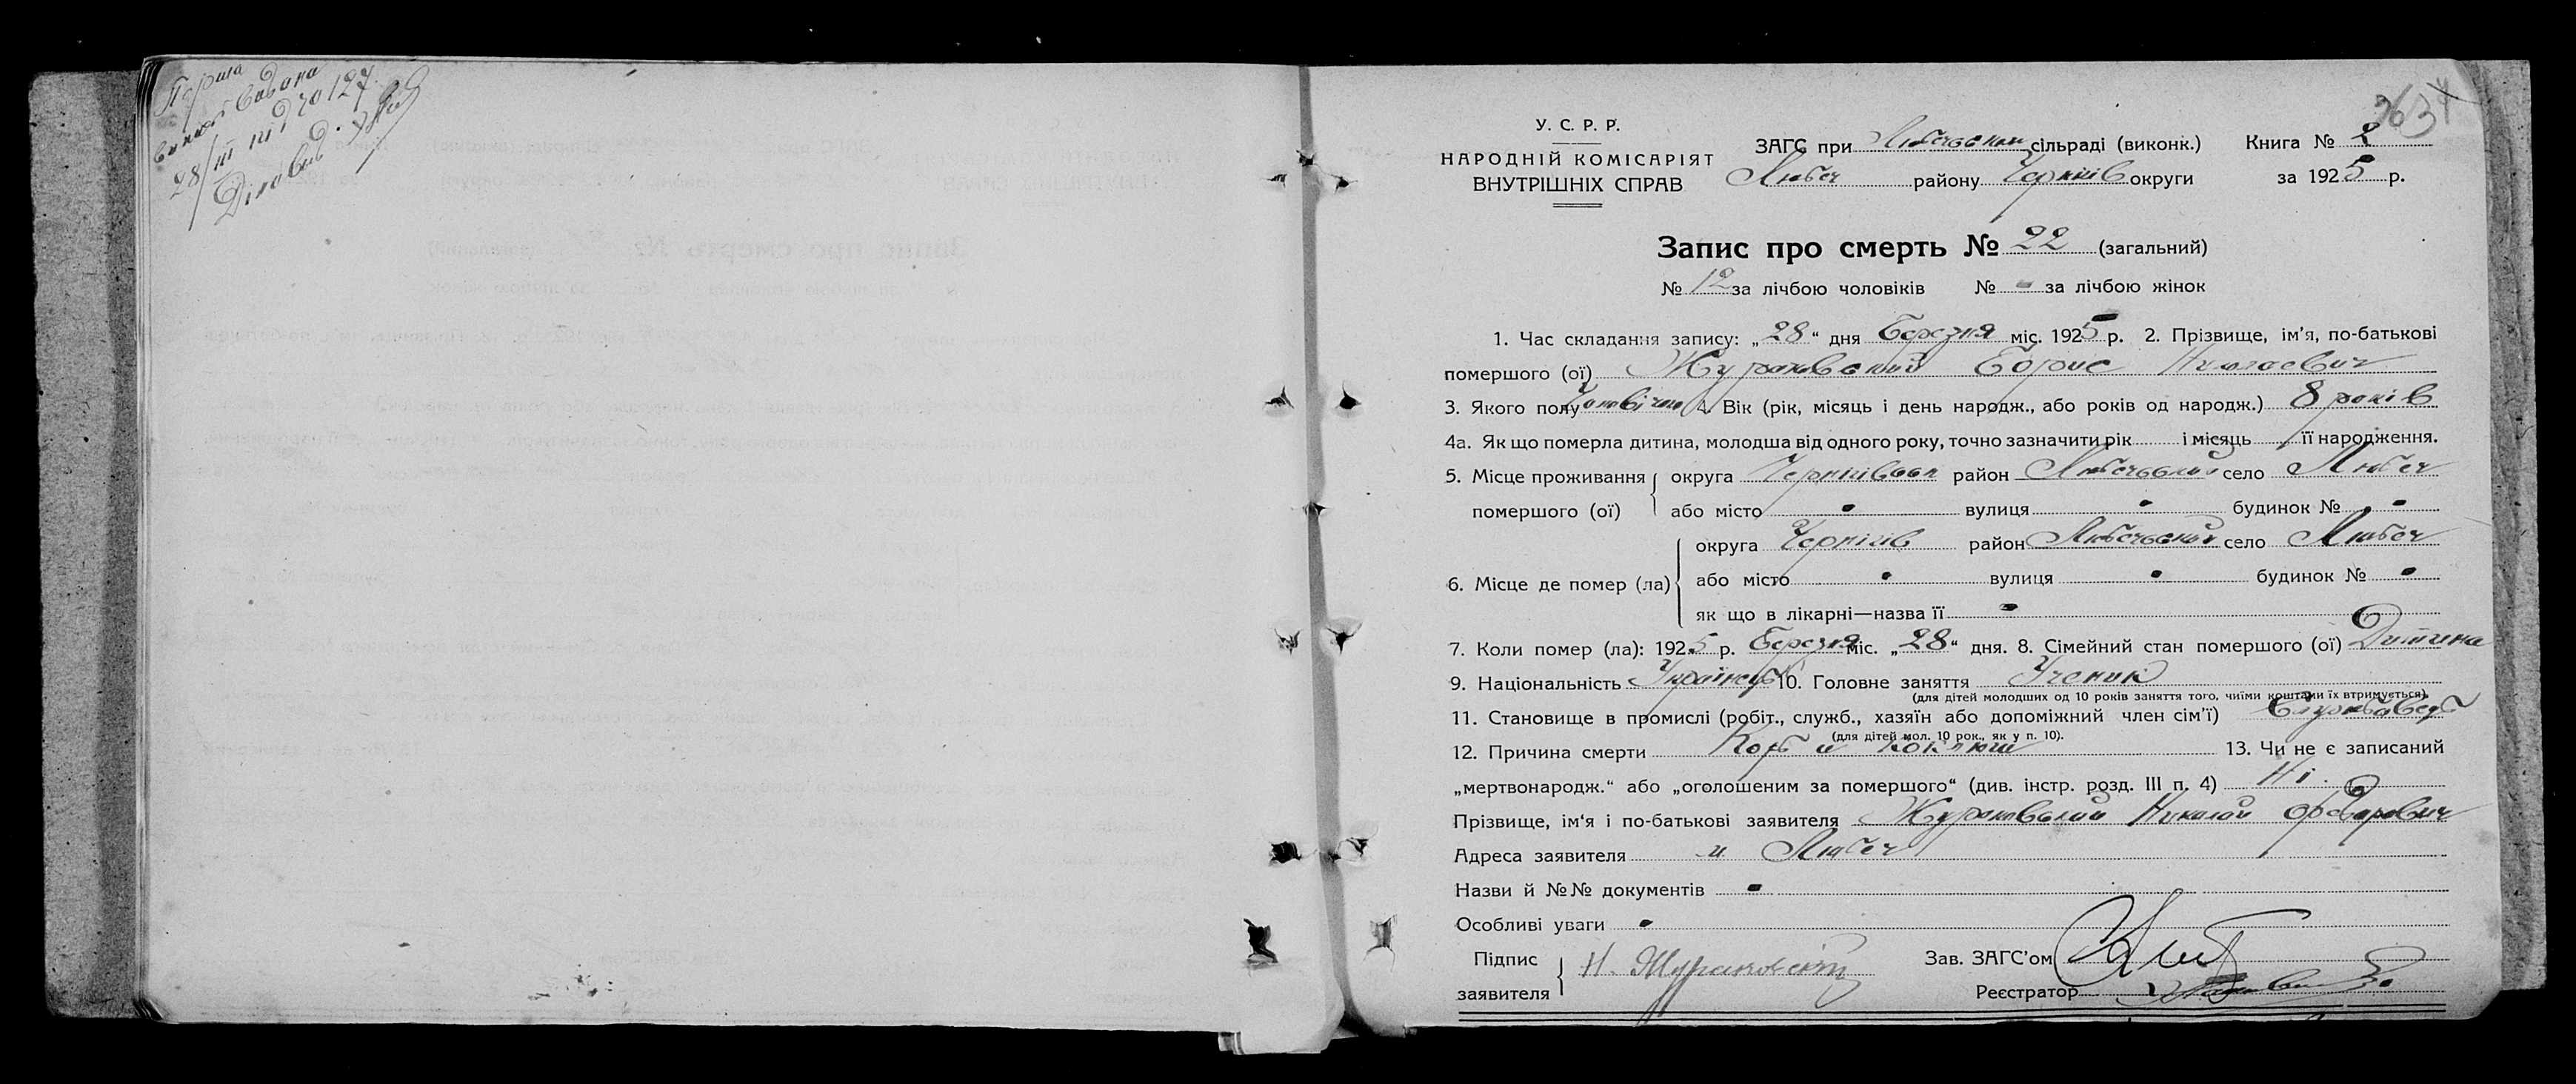 Перша
виписка видана
28/III під чо 127.
Діловод.
3634
У. С. Р. Р.
НАРОДНІЙ КОМІСАРІЯТ
ВНУТРІШНІХ СПРАВ
ЗАГС при Любечськом сільраді (виконк.) Книга № 2
Любеч району Чернігів округи за 1925 р.
Запис про смерть № 22 (загальний)
№ 12 за лічбою чоловіків № - за лічбою жінок
1. Час складання запису: „28“ дня Березня міс. 1925 р. 2. Прізвище, ім'я, по-батькові
помершого (ої) Жураковський Борис Николаевич
3. Якого полу Чоловічого 4. Вік (рік, місяць і день народж., або років од народж.) 8 років
4а. Як що померла дитина, молодша від одного року, точно зазначити рік і місяць її народження.
5. Місце проживання помершого (ої) округа Чернігівськ район Любечьский село Любеч
або місто - вулиця - будинок № -
6. Місце де помер (ла) округа Чернігів район Любечьский село Любеч
або місто - вулиця - будинок № -
як що в лікарні—назва її -
7. Коли помер (ла): 1925 р. Березня міс. „28“ дня. 8. Сімейний стан помершого (ої) Дитина
9. Національність Українець 10. Головне заняття Ученик
(для дітей молодших од 10 років заняття того, чиїми коштами їх втримується).
11. Становище в промислі (робіт., служб., хазяїн або допоміжний член сім'ї)
(для дітей мол. 10 рок., як у п. 10).
12. Причина смерти Корь и коклюш 13. Чи не є записаний
„мертвонародж.“ або „оголошеним за помершого“ (див. інстр. розд. III п. 4) Ні.
Прізвище, ім'я і по-батькові заявителя Жураковський Николай Федорович
Адреса заявителя м. Любеч
Назви й №№ документів -
Особливі уваги -
Підпис заявителя Н. Жураковский Зав. ЗАГС'ом
Реєстратор